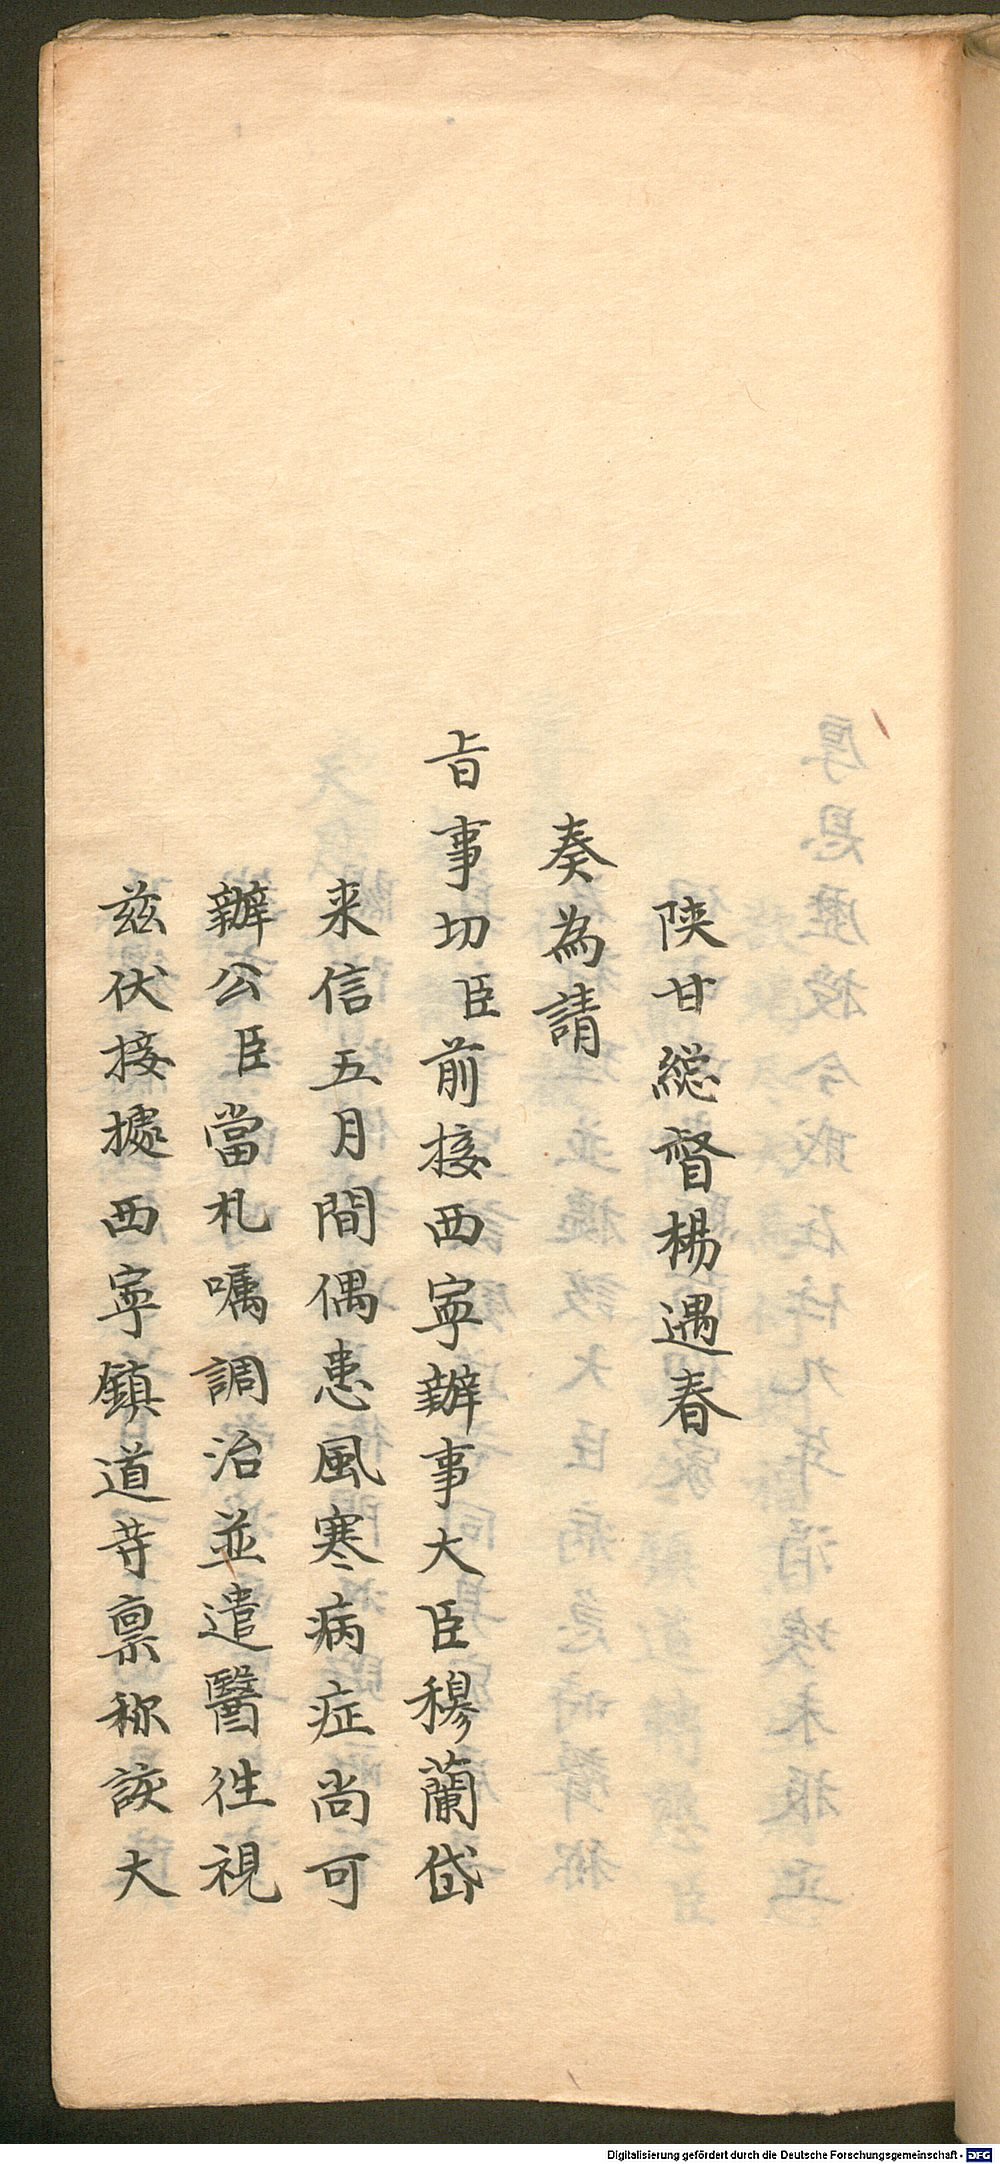 陕甘総督楊遇春
奏為請
旨事切臣前接西寧辦事大臣穆蘭岱
来信五月間偶患風寒病症尚可
辦公臣當札嘱調治並遣醫徃視
兹伏接據西寧鎮道等禀称該大
Digitalisierung gefördert durch die Deutsche Forschungsgemeinschaft - DFG